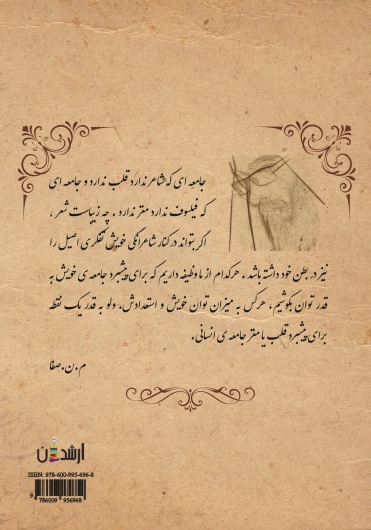 جامعه ای که شاعر ندارد قلب ندارد و جامعه ای
که فیلسوف ندارد مغز ندارد. چه زیباست شعر،
اگر بتواند در کنار شاعرانگی خویش تفکری اصیل را
نیز در بطن خود داشته باشد. هرکدام از ما وظیفه داریم که برای پیشبرد جامعه ی خویش به
قدر توان بکوشیم، هرکس به میزان توان خویش و استعدادش، ولو به قدر یک نقطه
برای پیشبرد قلب یا مغز جامعه ی انسانی.
م.ن.صفا
ارشدان
ISBN: 978-600-995-696-8
9 786009 956968